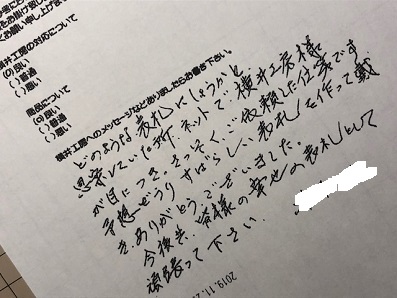 をお掛け致し
とお願い申し上げま
横井工房の対応について
(o) 良い
( ) 普通
( ) 悪い
商品について
(o) 良い
( ) 普通
( ) 悪い
横井工房へのメッセージなどありましたらお書き下さい。
どのような表札にしょうかと
思案していた所 ネットで、横井工房様
が目につき、さっそくご依頼した仕第です
予想どうり すばらしい表札を作って戴
き、ありがとうございました。
今後共、皆様の家の表札として
頑張って下さい。
2019. 11. 2